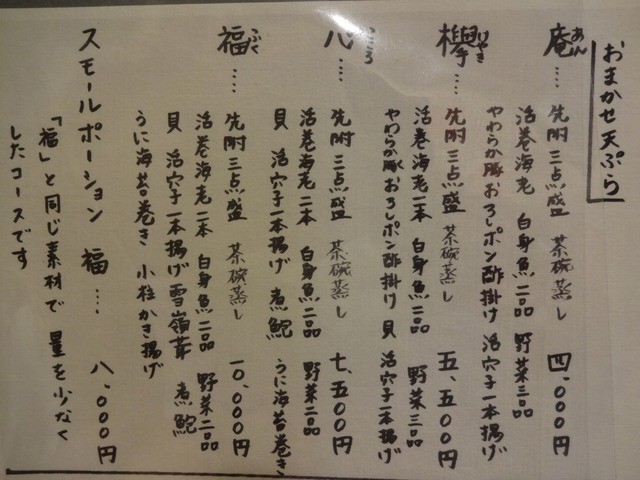 おまかせ天ぷら
庵 あん …… 先附三点盛 茶碗蒸し 四、000円
活巻海老 白身魚二品 野菜三品
やわらか豚おろしポン酢掛け 活穴子一本揚げ
欅 けやき …… 先附三点盛 茶碗蒸し 五、五00円
活巻海老二本 白身魚二品 野菜三品
やわらか豚おろしポン酢掛け 貝 活穴子一本揚げ
心 こころ …… 先附三点盛 茶碗蒸し 七、五00円
活巻海老二本 白身魚二品 野菜二品
貝 活穴子一本揚げ 煮鮑 うに海苔巻き
福 ふく …… 先附三点盛 茶碗蒸し 一0、000円
活巻海老二本 白身魚二品 野菜二品
貝 活穴子一本揚げ 雪嶺茸 煮鮑
うに海苔巻き 小柱かき揚げ
スモールポーション 福 …… 八、000円
「福」と同じ素材で 量を少なく
したコースです